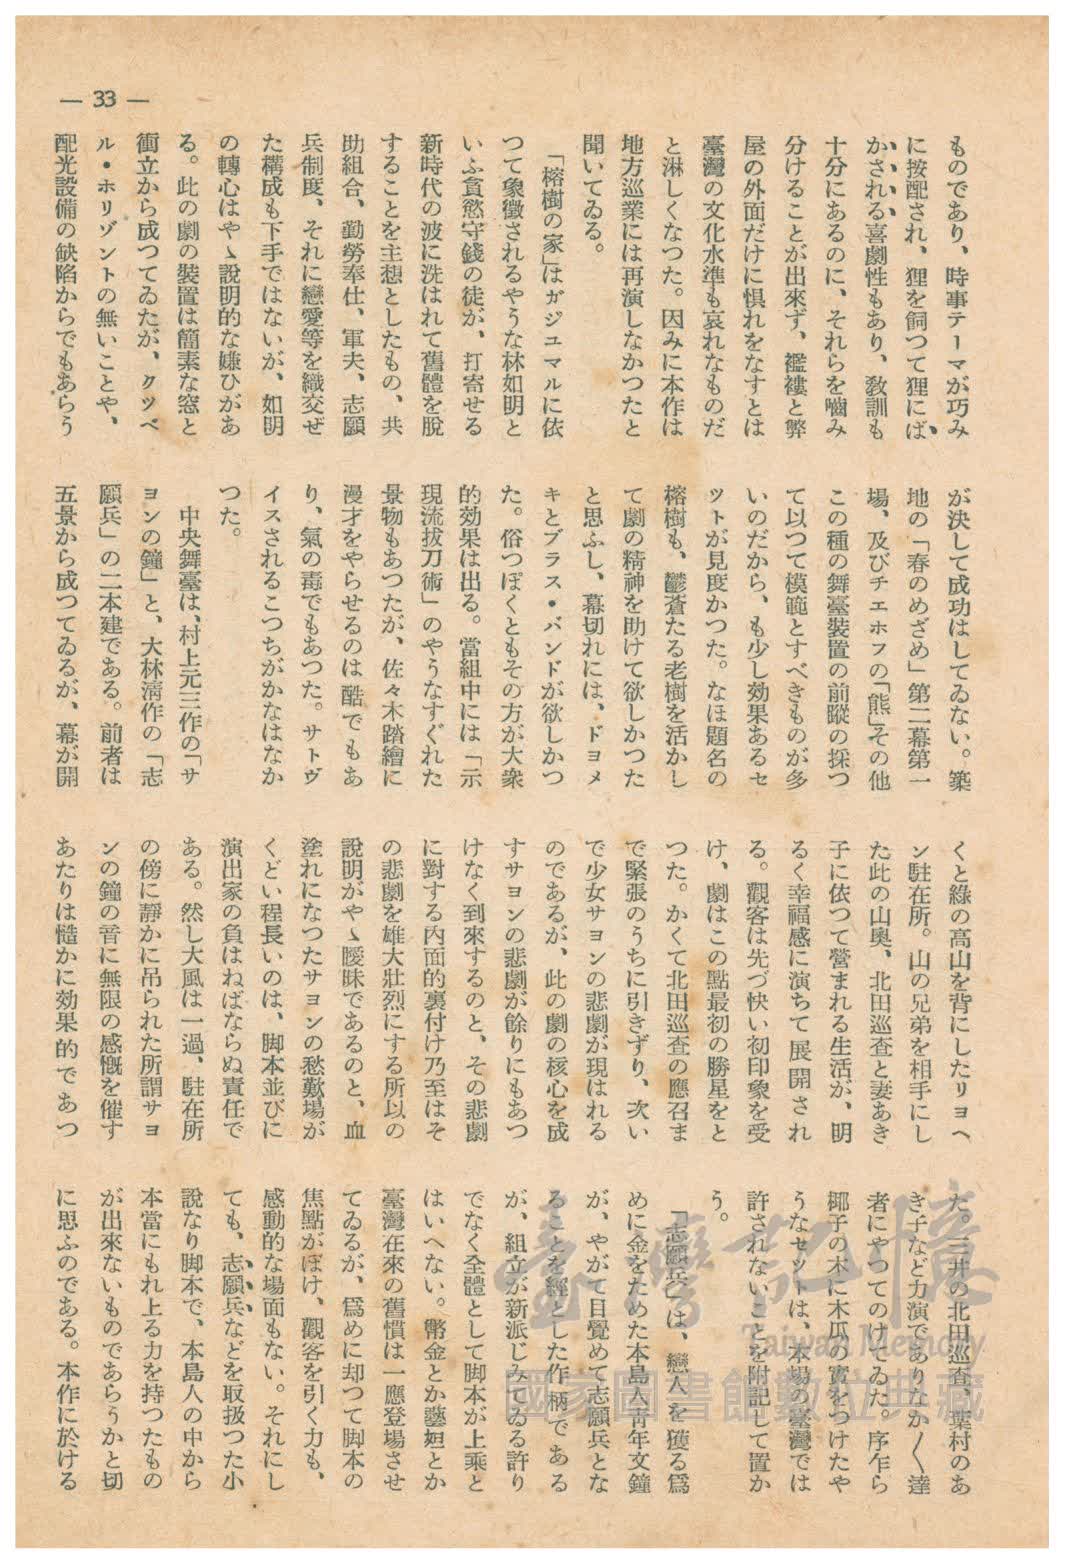 — 33 —
ものであり、時事テーマが巧み
に按配され、狸を飼つて狸にば
かされる喜劇性もあり、敎訓も
十分にあるのに、それらを嚙み
分けることが出來ず、襤褸と弊
屋の外面だけに惧れをなすとは
臺灣の文化水準も哀れなものだ
と淋しくなつた。因みに本作は
地方巡業には再演しなかつたと
聞いてゐる。
「榕樹の家」はガジユマルに依
つて象徵されるやうな林如明と
いふ貪慾守錢の徒が、打寄せる
新時代の波に洗はれて舊體を脫
することを主想としたもの、共
助組合、勤勞奉仕、軍夫、志願
兵制度、それに戀愛等を織交ぜ
た構成も下手ではないが、如明
の轉心はやゝ說明的な嫌ひがあ
る。此の劇の裝置は簡素な窓と
衝立から成つてゐたが、クツペ
ル・ホリゾントの無いことや、
配光設備の缺陷からでもあらう
が決して成功はしてゐない。築
地の「春のめざめ」第二幕第一
場、及びチエホフの「熊」その他
この種の舞臺裝置の前蹤の採つ
て以つて模範とすべきものが多
いのだから、も少し効果あるセ
ツトが見度かつた。なほ題名の
榕樹も、鬱蒼たる老樹を活かし
て劇の精神を助けて欲しかつた
と思ふし、幕切れには、ドヨメ
キとブラス・バンドが欲しかつ
た。俗つぽくともその方が大衆
的効果は出る。當組中には「示
現流拔刀術」のやうなすぐれた
景物もあつたが、佐々木踏繪に
漫才をやらせるのは酷でもあ
り、氣の毒でもあつた。サトヴ
イスされるこつちがかなはなか
つた。
中央舞臺は、村上元三作の「サ
ヨンの鐘」と、大林淸作の「志
願兵」の二本建である。前者は
五景から成つてゐるが、幕が開
くと綠の高山を背にしたリヨヘ
ン駐在所。山の兄弟を相手にし
た此の山奧、北田巡査と妻あき
子に依つて營まれる生活が、明
るく幸福感に演ちて展開され
る。觀客は先づ快い初印象を受
け、劇はこの點最初の勝星をと
つた。かくて北田巡査の應召ま
で緊張のうちに引きずり、次い
で少女サヨンの悲劇が現はれる
のであるが、此の劇の核心を成
すサヨンの悲劇が餘りにもあつ
けなく到來するのと、その悲劇
に對する內面的裏付け乃至はそ
の悲劇を雄大壯烈にする所以の
說明がやゝ曖昧であるのと、血
塗れになつたサヨンの愁歎場が
くどい程長いのは、脚本並びに
演出家の負はねばならぬ責任で
ある。然し大風は一過、駐在所
の傍に靜かに吊られた所謂サヨ
ンの鐘の音に無限の感慨を催す
あたりは慥かに効果的であつ
た。三井の北田巡査、葉村のあ
き子など力演でありなか〱達
者にやつてのけてゐた。序乍ら
椰子の木に木瓜の實をつけたや
うなセツトは、本場の臺灣では
許されないことを附記して置か
う。
「志願兵」は、戀人を獲る爲
めに金をためた本島人靑年文鐘
が、やがて目覺めて志願兵とな
ることを經とした作柄である
が、組立が新派じみてゐる許り
でなく全體として脚本が上乘と
はいへない。幣金とか藝妲とか
臺灣在來の舊慣は一應登場させ
てゐるが、爲めに却つて脚本の
焦點がぼけ、觀客を引く力も、
感動的な場面もない。それにし
ても、志願兵などを取扱つた小
說なり脚本で、本島人の中から
本當にもれ上る力を持つたもの
が出來ないものであらうかと切
に思ふのである。本作に於ける
臺灣記憶
Taiwan Memory
國家圖書館數位典藏